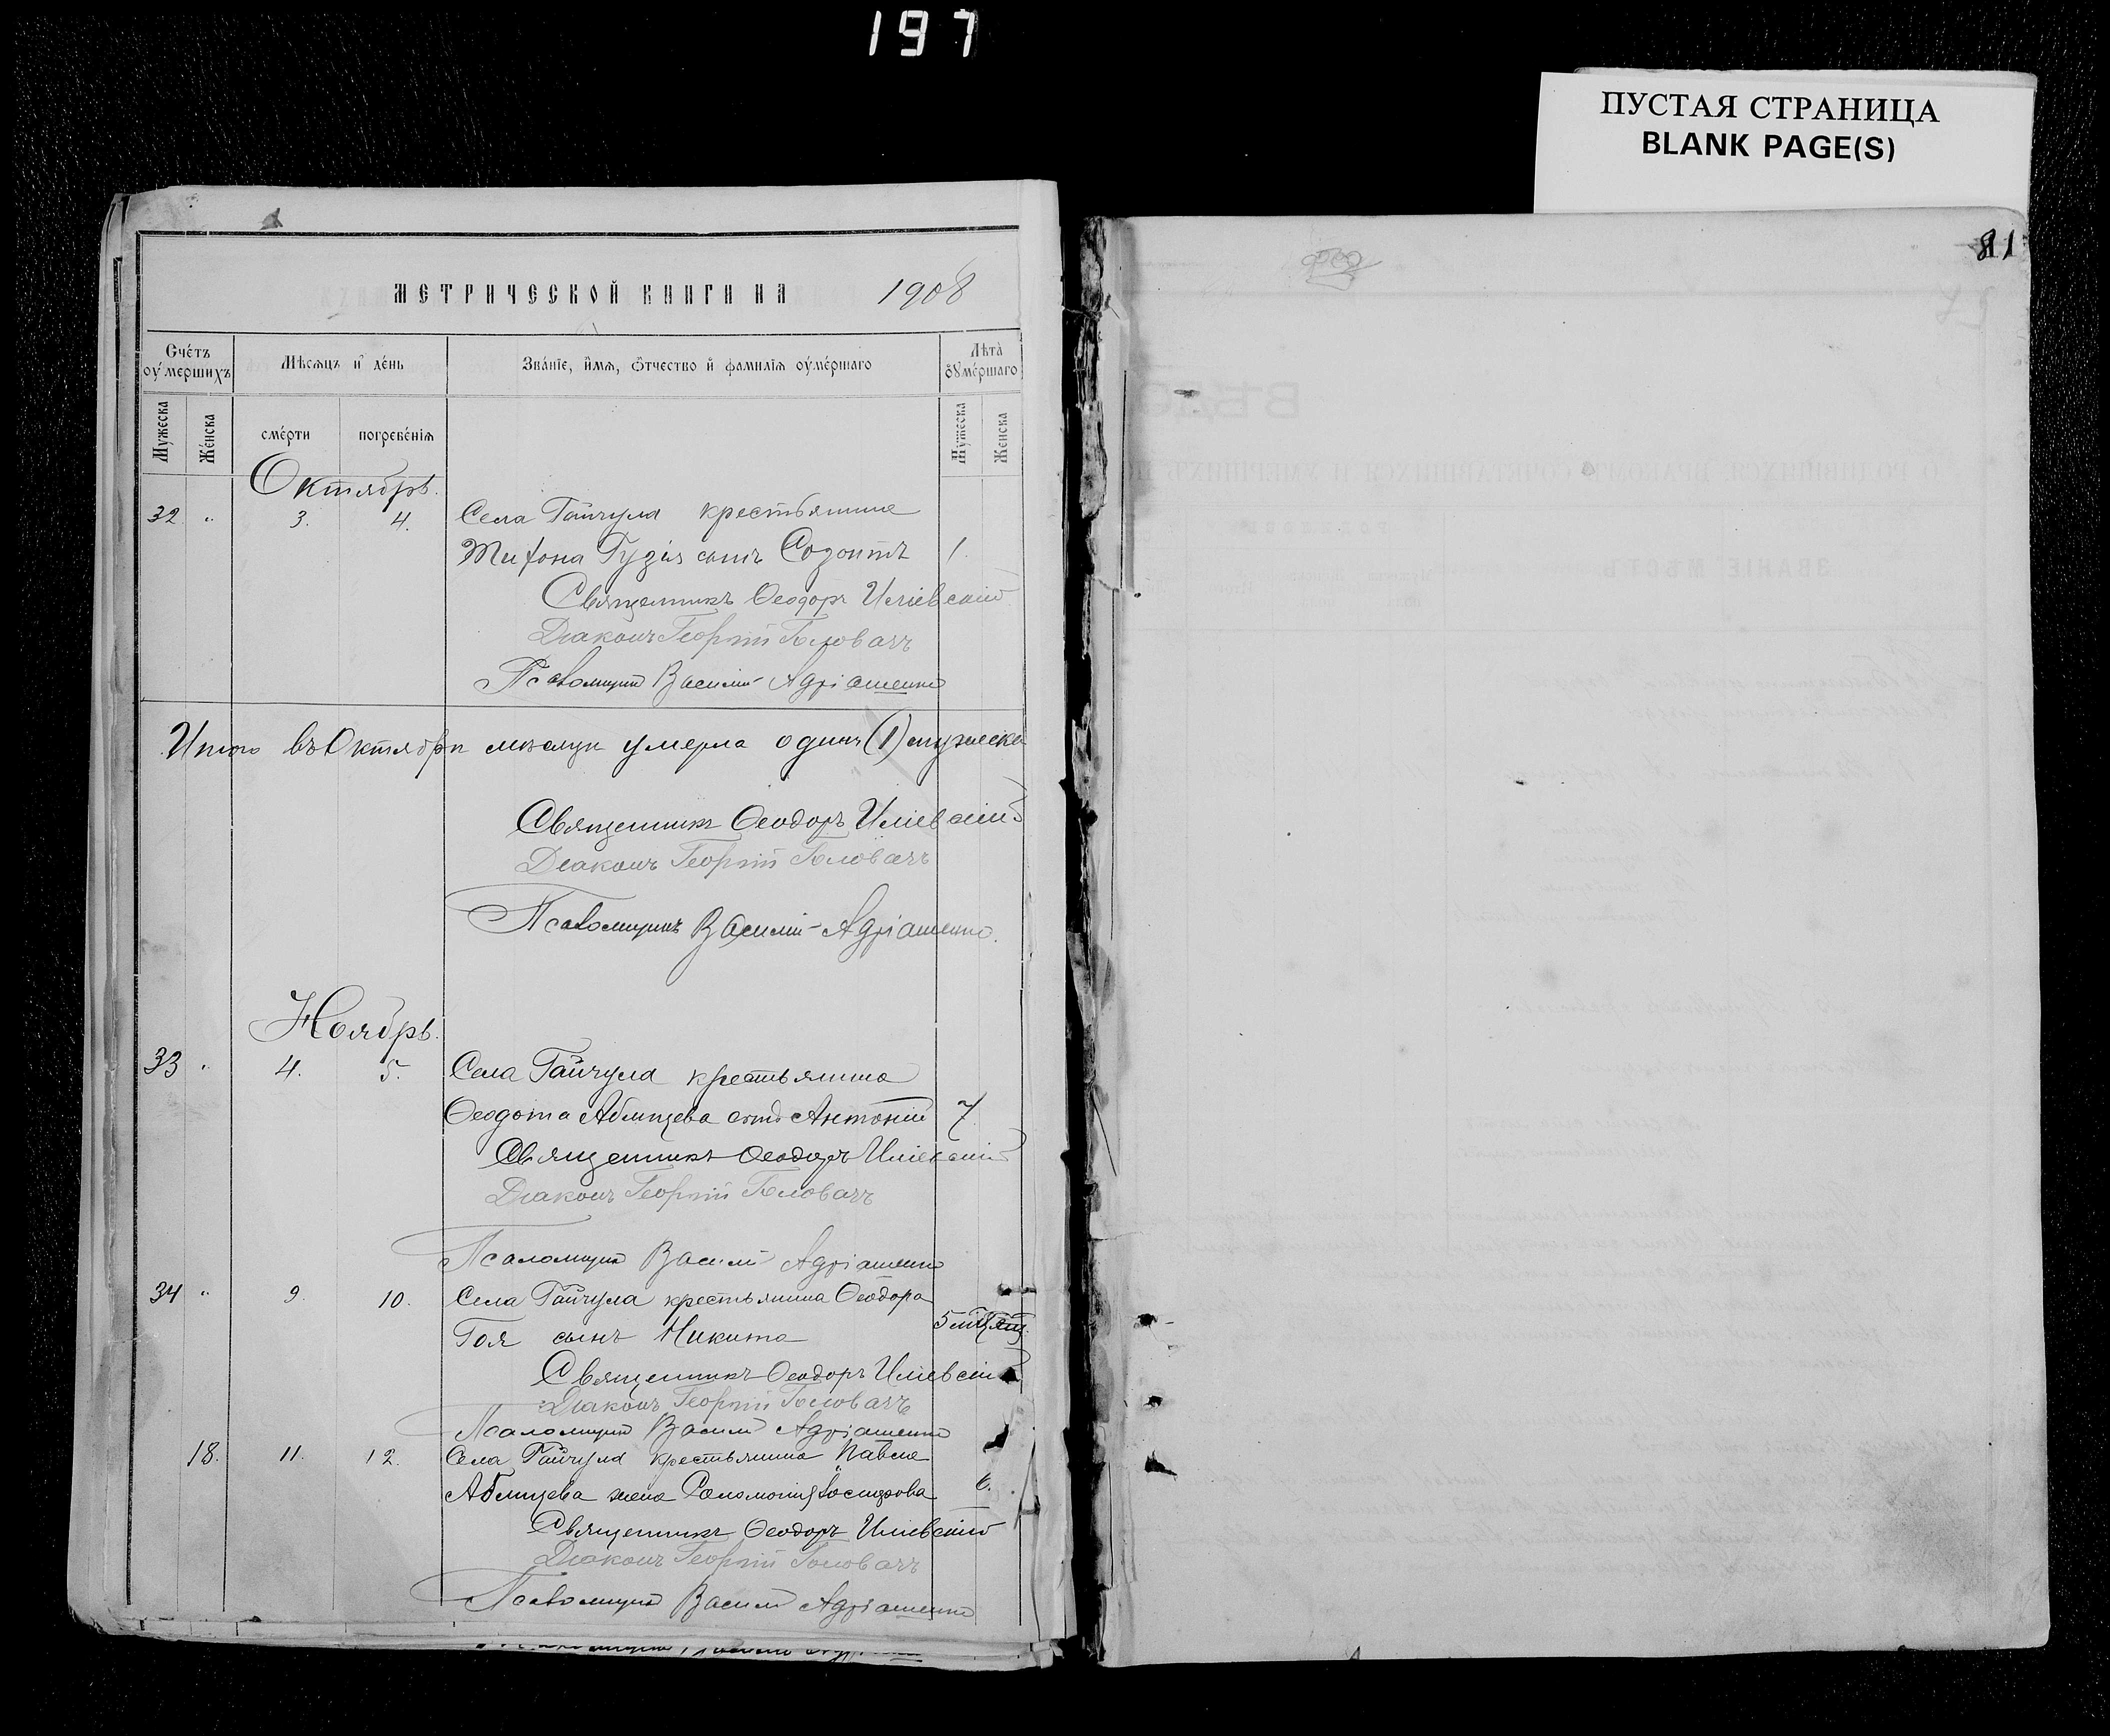 197
ПУСТАЯ СТРАНИЦА
BLANK PAGE(S)
81
МЕТРИЧЕСКОЙ КНИГИ НА 1908
Счетъ оумершихъ
Мѣсяцъ и день
Званіе, имя, отчество и фамилія оумершаго
Лѣта оумершаго
Мужеска
Женска
смерти
погребенія
Мужеска
Женска
Октябрь.
32 " 3. 4. Села Гайчула крестьянина
Гузія сынъ Созонтъ 1.
Священникъ Ѳеодоръ Иліевскій
Діаконъ Георгій Головачъ
Псаломщикъ Василій Адріашенко
Итого въ Октябрѣ мѣсяцѣ умерла одинъ (1) мужеска
Священникъ Ѳеодоръ Иліевскій
Діаконъ Георгій Головачъ
Псаломщикъ Василій Адріашенко.
Ноябрь.
33 " 4. 5. Села Гайчула крестьянина
Ѳеодота Аблицева сынъ Антоній 7.
Священникъ Ѳеодоръ Иліевскій
Діаконъ Георгій Головачъ
Псаломщикъ Василій Адріашенко
34 " 9. 10. Села Гайчула крестьянина Ѳеодора
Гоя сынъ Никита 5
Священникъ Ѳеодоръ Иліевскій
Діаконъ Георгій Головачъ
Псаломщикъ Василій Адріашенко
18. 11. 12. Села Гайчула крестьянина Павла
Аблицева жена Соломонія
Священникъ Ѳеодоръ Иліевскій
Діаконъ Георгій Головачъ
Псаломщикъ Василій Адріашенко